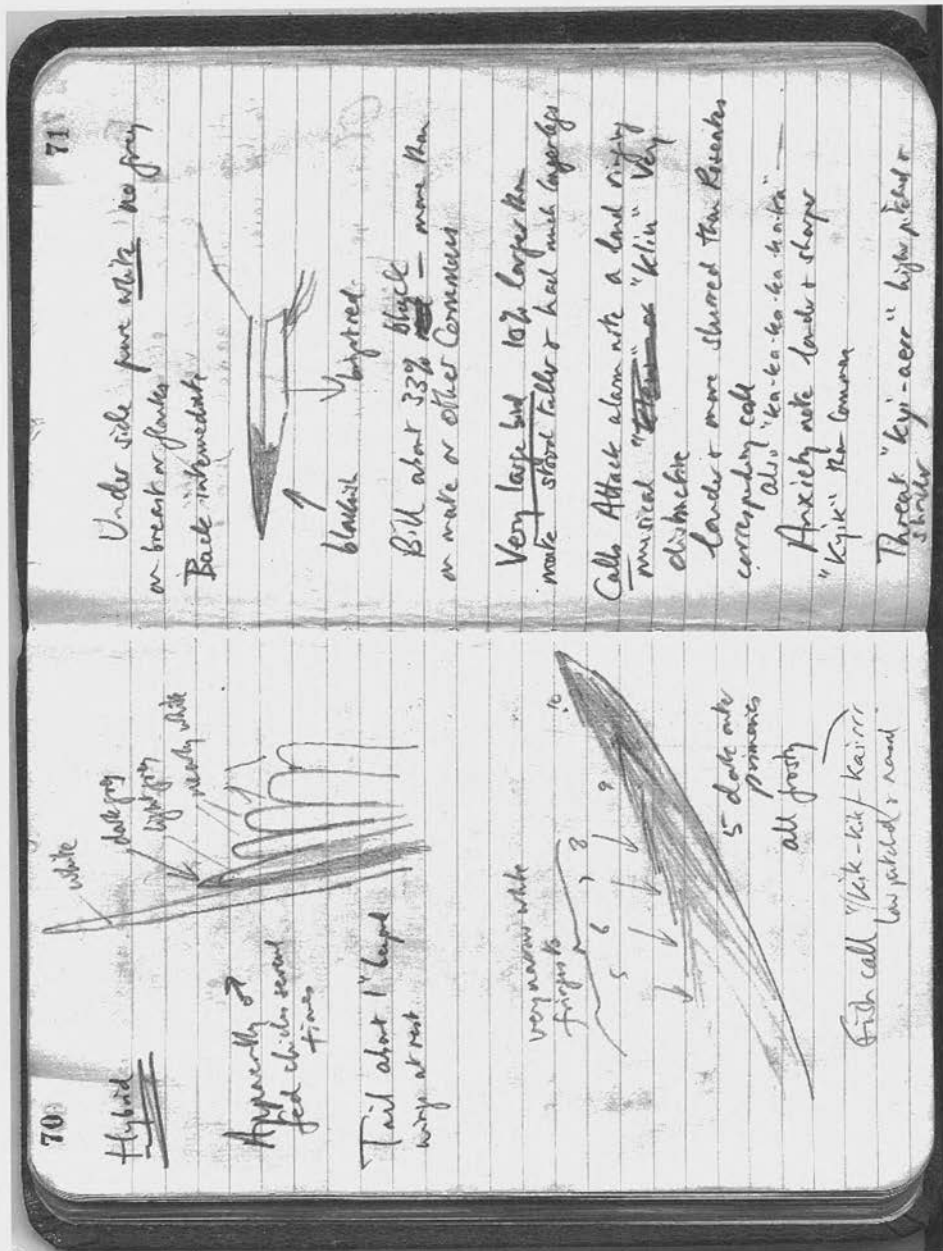 70
Hybrid
white
dark grey
light grey
nearly white
Apparently ♂
fed chicks several
times
Tail about 1" beyond
wings at rest
very narrow white
fringes to
5 6 7 8 9 10
5 dark outer
primaries
all frosty
Fish call "kik-kik / kairrr
low pitched &
71
Under side pure white no grey
on breast or flanks
Back intermediate
blackish
bright red
Bill about 33% black — more than
on mate or other Commons
Very large bird 10% larger than
mate stood taller & had much longer legs
Calls Attack alarm note a loud ringing
musical "kliu" Very
distinctive
louder & more slurred than Roseates
corresponding call
also "ka-ka-ka-ka-ka-ka" —
Anxiety note louder & sharper
"Kyik" than Common
Threat "kyi-aerr" higher pitched &
shorter